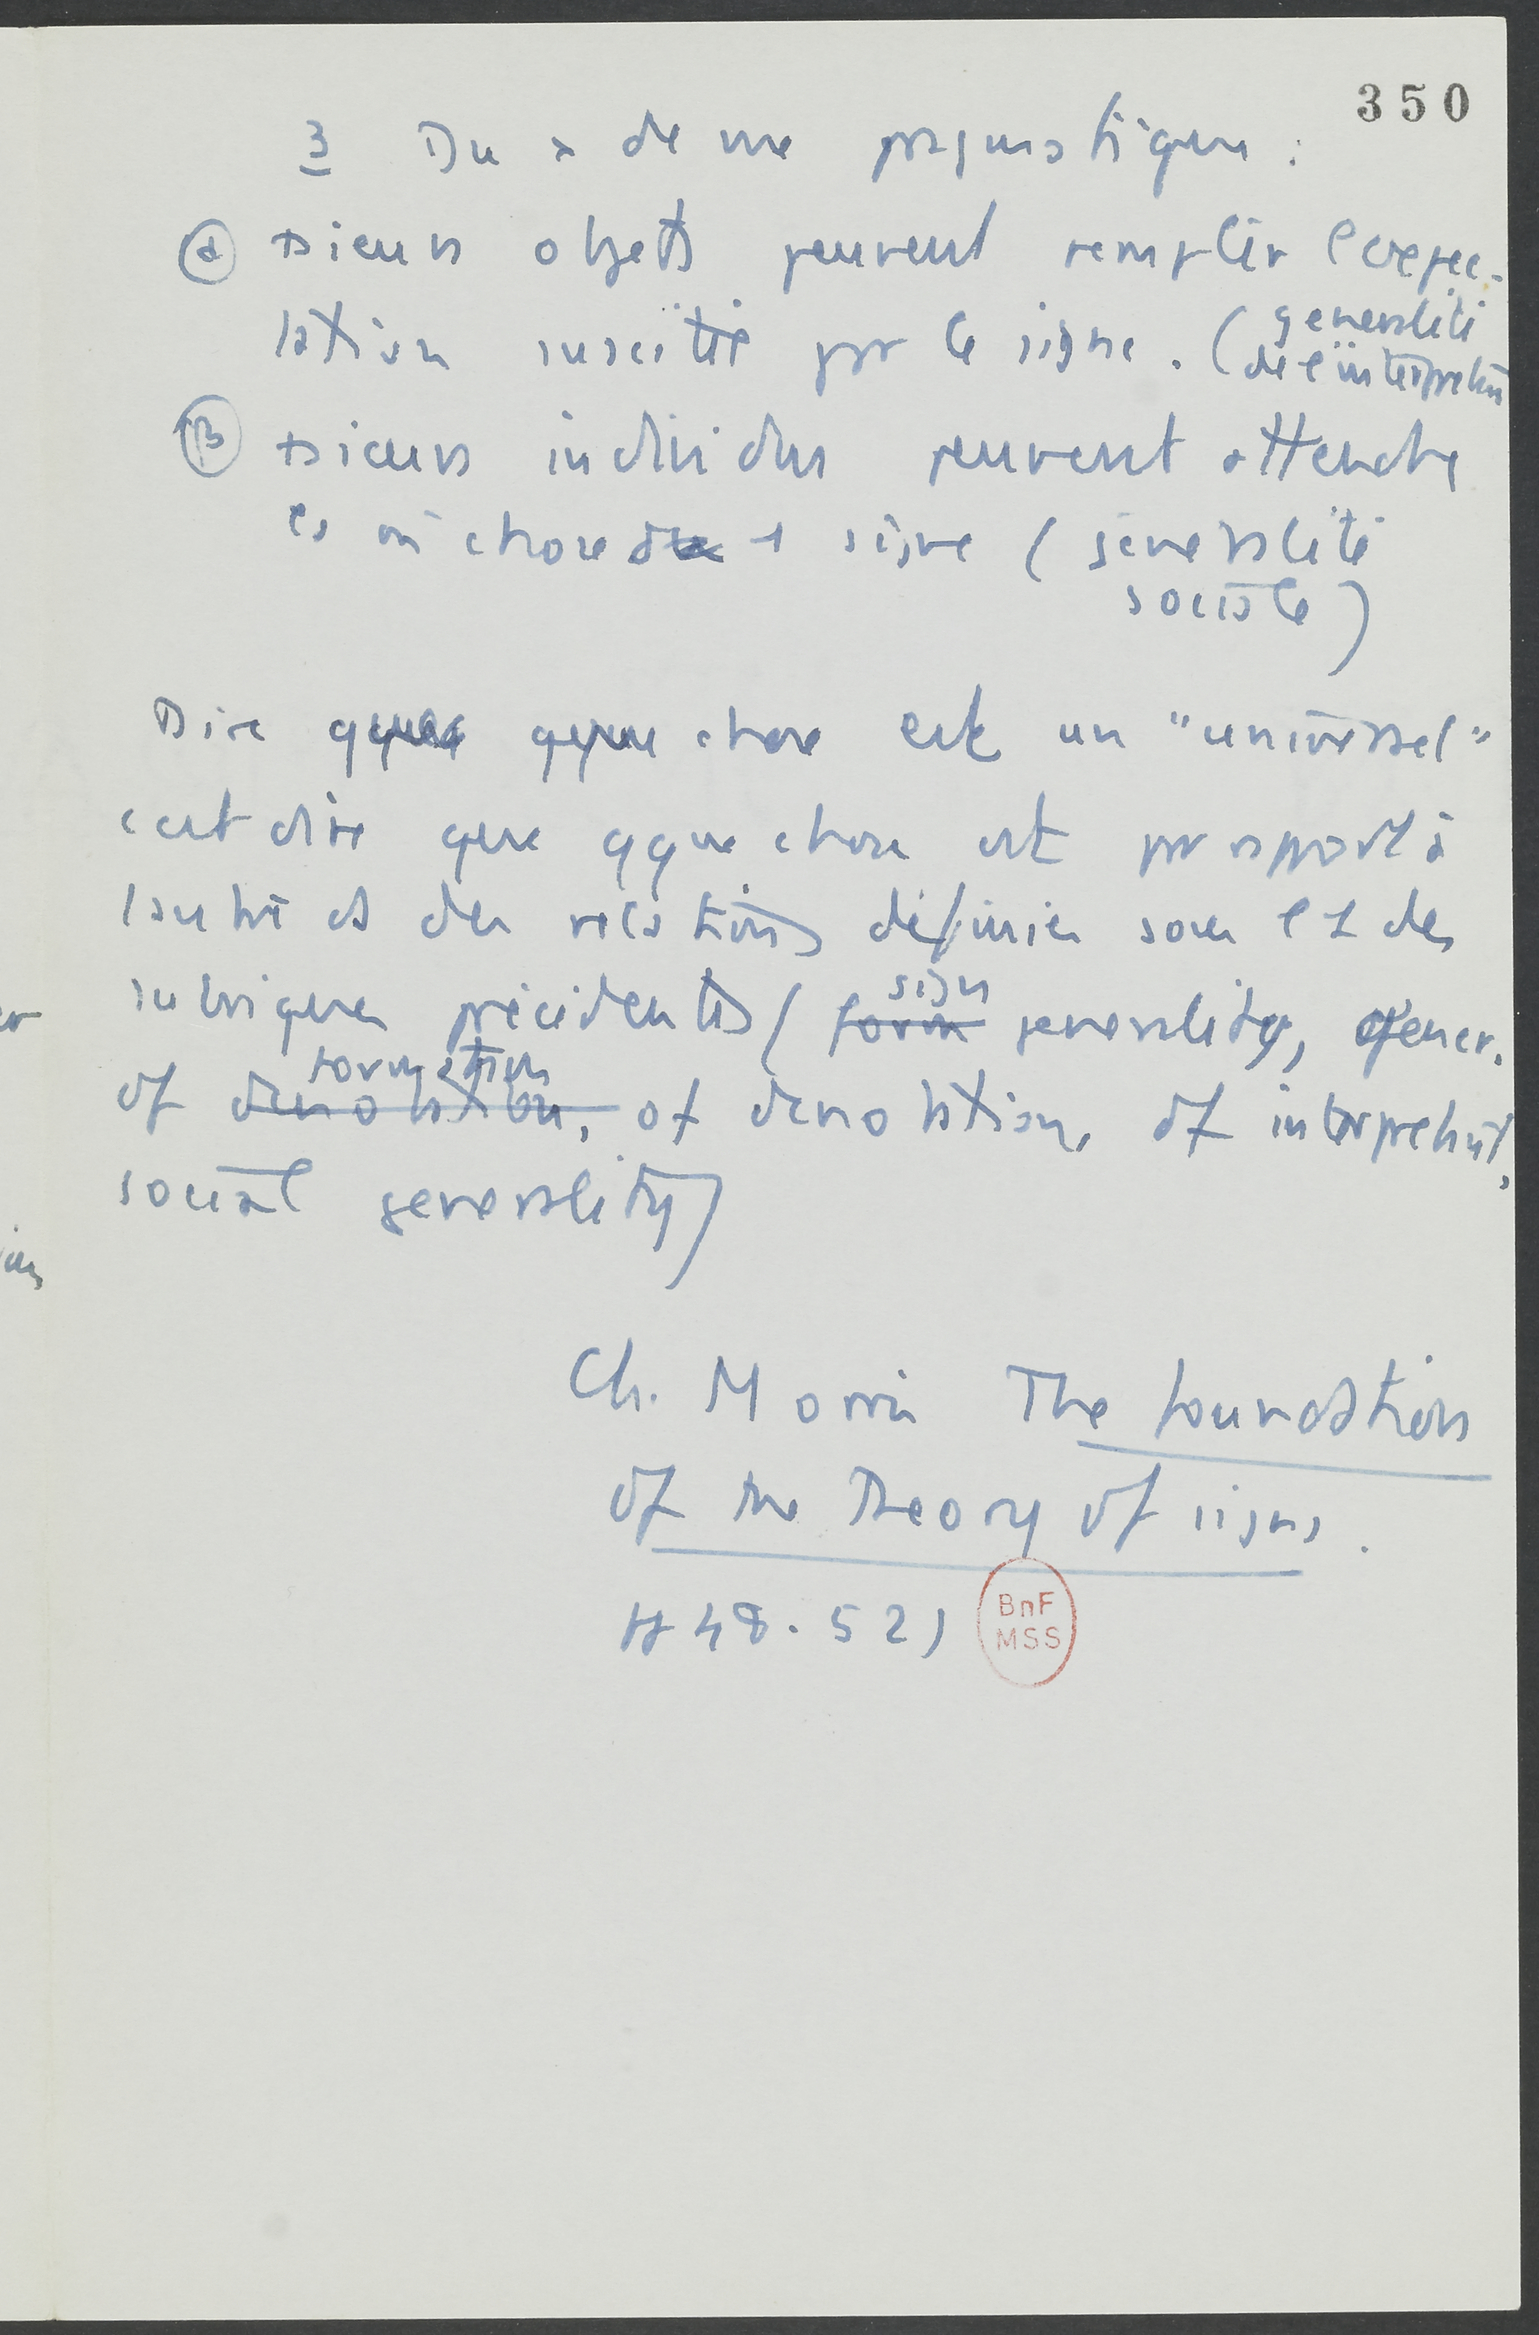 350
3 Du x de vue pragmatique :
α +sieurs objets peuvent remplir l'expec-
tation suscitée par le signe. (généralité
de l'interprétation
β +sieurs individus peuvent attendre
la m̂ chose de 1 signe (généralité
sociale)
Dire qque qque chose est un "universel"
c'est dire que qque chose est par rapport à
l'autre ds des relations définies sous l'1 des
rubriques précédentes (form sign generality, gener.
of denotation, formation of denotation, of interpretant,
social generality)
Ch. Morris The foundations
of the theory of signs.
pp 48-52)
BnF
MSS